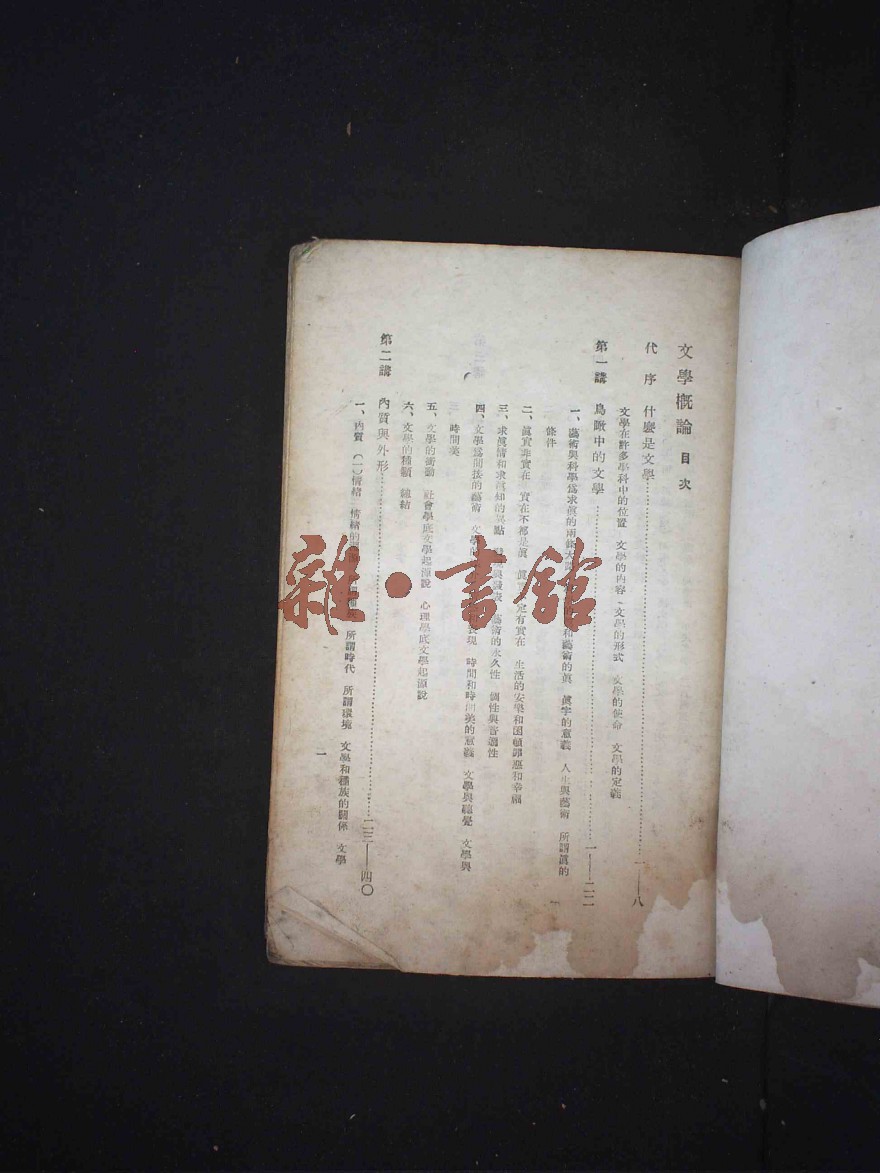 文學概論 目次
代序 什麼是文學……一——八
文學在許多學科中的位置 文學的內容 文學的形式 文學的使命 文學的定義
第一講 鳥瞰中的文學……一——二二
一、藝術與科學爲求眞的兩條大 和藝術的眞 眞字的意義 人生與藝術 所謂眞的
條件
二、眞實非實在 實在不都是眞 定有實在 生活的安樂和困頓 和幸福
三、求眞情和求眞知的異點 與發表 藝術的永久性 個性與普遍性
四、文學爲間接的藝術 文學的 表現 時間和時間美的意義 文學與聽覺 文學與
時間美
五、文學的衝動 社會學底文學起源說 心理學底文學起源說
六、文學的種類 總結
第二講 內質與外形……二三——四〇
一、內質 (一)情緒 情緒的 所謂時代 所謂環境 文學和種族的關係 文學
一
雜·書館